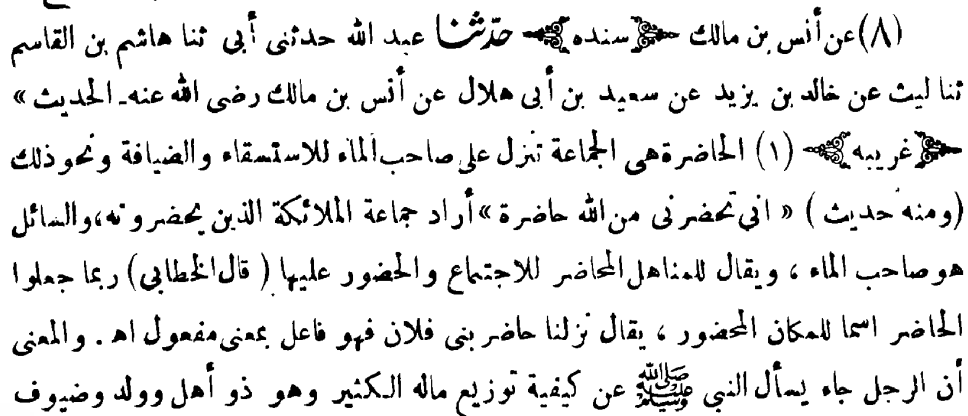 (٨) عن أنس بن مالك ﴿سنده﴾ حدّثنا عبد الله حدثنى أبى ثنا هاشم بن القاسم
ثنا ليث عن خالد بن يزيد عن سعيد بن أبى هلال عن أنس بن مالك رضى الله عنه ـ الحديث »
﴿غريبه﴾ (١) الحاضرة هى الجماعة تنزل على صاحب الماء للاستسقاء والضيافة ونحو ذلك
(ومنه حديث) « انى تحضرنى من الله حاضرة » أراد جماعة الملائكة الذين يحضرونه، والسائل
هو صاحب الماء ، ويقال للمناهل المحاضر للاجتماع والحضور عليها ( قال الخطابى ) ربما جعلوا
الحاضر اسما للمكان المحضور ، يقال نزلنا حاضر بنى فلان فهو فاعل بمعنى مفعول اه . والمعنى
أن الرجل جاء يسأل النبى ﷺ عن كيفية توزيع ماله الكثير وهو ذو أهل وولد وضيوف